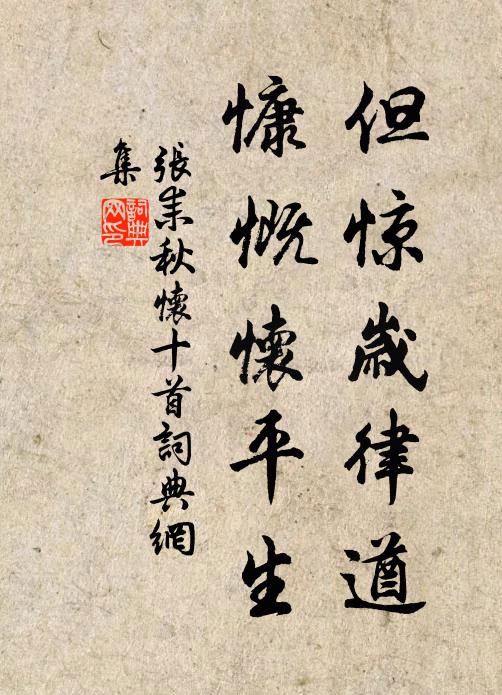 但惊歳律遒
慷慨懷平生
張耒秋懷十首詞典網
集
詞典
网印